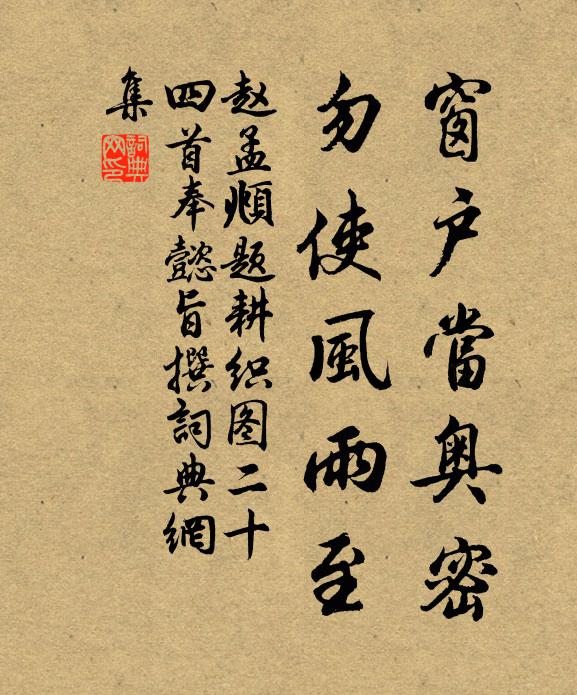 窗户當奥密
勿使風雨至
赵孟頫题耕织图二十
四首奉懿旨撰詞典網
集
詞典网印